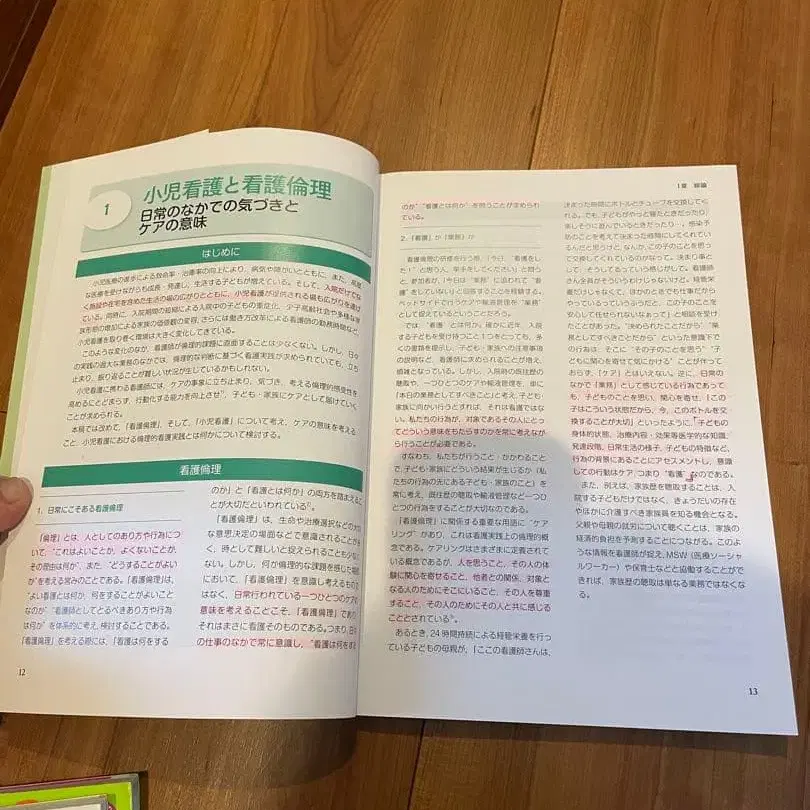 1
小児看護と看護倫理
日常のなかでの気づきと
ケアの意味
はじめに
小児医療の進歩による救命率・治癒率の向上により、病気や障がいとともに、また、高度
な医療を受けながらも成長・発達し、生活する子どもが増えている。そして、入院だけでな
く施設や在宅を含めた生活の場の広がりとともに、小児看護が提供される場も広がりを遂げ
ている。同時に、入院期間の短縮による入院中の子どもの重症化、少子高齢社会や多様な家
族形態の増加による家族の価値観の変容、さらには働き方改革による看護師の勤務時間など、
小児看護を取り巻く環境は大きく変化してきている。
このような変化のなか、看護師が倫理的課題に直面することは少なくない。しかし、日々
の実践の過大な業務のなかでは、倫理的な判断に基づく看護実践が求められていても、立ち
止まり、振り返ることが難しい状況が生じているかもしれない。
小児看護に携わる看護師には、ケアの事象に立ち止まり、気づき、考える倫理的感受性を
高めるにとどまらず、行動化する能力を向上させ、子ども・家族にケアとして届けていく
ことが求められる。
本稿では改めて、「看護倫理」、そして、「小児看護」について考え、ケアの意味を考える
こと、小児看護における倫理的看護実践とは何かについて検討する。
看護倫理
1. 日常にこそある看護倫理
「倫理」とは、人としてのあり方や行為につ
いて、“これはよいことか、よくないことか、
その理由は何か”、また、“どうすることがよい
か”を考える営みのことである。「看護倫理」は、
“よい看護とは何か、何をすることがよいこと
なのか”“看護師としてとるべきあり方や行為
は何か”を体系的に考え、検討することである。
「看護倫理」を考える際には、「看護は何をする
のか」と「看護とは何か」の両方を踏まえるこ
とが大切だといわれている。
「看護倫理」は、生命や治療選択などの大
な意思決定の場面などで意識されることが多
く、時として難しいと捉えられることも少な
ない。しかし、何か倫理的な課題を感じた場
において、「看護倫理」を意識し考えるもので
はなく、日常行われている一つひとつのケアの
意味を考えることこそ、「看護倫理」であり
それはまさに看護そのものである。つまり、日々
の仕事のなかで常に意識し、“看護は何をする
12
1章 総論
のか”“看護とは何か”を問うことが求められ
ている。
2. 「看護」か「業務」か
看護倫理の研修を行う際、「今日、“看護をし
た！”と思う人、挙手をしてください」と問う
と、参加者が、「今日は“業務”に追われて“看
護”をしていない」と回答することを経験する。
ベッドサイドで行うケアや輸液管理を“業務”
として捉えているということだろう。
では、“看護”とは何か。確かに近年、入院
する子どもを受け持つこと1つをとっても、多
くの書類を提示し、子ども・家族への注意事項
の説明など、看護師に求められることが増え、
煩雑となっている。しかし、入院時の既往歴の
聴取や、一つひとつのケアや輸液管理を、単に
「本日の業務としてすべきこと」と考え、子ども・
家族に向かい行うとすれば、それは看護ではな
い。私たちの行為が、対象であるその人にとっ
てどういう意味をもたらすのかを常に考えなが
ら行うことが必要である。
すなわち、私たちが行うこと・かかわること
で、子ども・家族にどういう結果が生じるか（私
たちの行為の先にある子ども・家族のこと）を
常に考え、既往歴の聴取や輸液管理など一つひ
とつの行為をすることが大切なのである。
「看護倫理」に関係する重要な用語に“ケア
リング”があり、これは看護実践上の倫理的概
念である。ケアリングはさまざまに定義されて
いる概念であるが、人を思うこと、その人の体
験に関心を寄せること、他者との関係、対象と
なる人のためにそこにいること、その人を尊重
すること、その人のためにその人と共に感じる
こととされている。
あるとき、24時間持続による経管栄養を行っ
ている子どもの母親が、「ここの看護師さんは、
決まった時間にボトルとチューブを交換してく
れる。でも、子どもがやっと寝たときだったり、
楽しそうに遊んでいるときだったり…。感染予
防のことを考えて決まった時間にしてくれてい
るんだと思うけど、なんか、この子のことを思っ
て交換してくれているのかなって。決まり事と
して、そうしてるっていう感じがして。看護師
さん全員がそういうわけじゃないけど。経管栄
養だけじゃなくて、ほかのときでも仕事だから
やっているっていうふうだと、この子のことを
安心して任せられないなぁって」と相談を受け
たことがあった。“決められたことだから”“業
務としてすべきことだから”といった意識下で
の行為は、そこに“その子のことを思う”“子
どもに関心を寄せて気にかける”ことが伴って
おらず、「ケア」とはいえない。逆に、日常の
なかで「業務」として感じている行為であって
も、子どものことを思い、関心を寄せ、「この
子はこういう状態だから、今、このボトルを交
換することが大切」といったように、「子どもの
身体的状態、治療内容・効果等医学的な知識、
発達段階、日常生活の様子、子どもの特徴など、
行為の背景にあることにアセスメントし、意識
しての行動はケア、つまり“看護”なのである。
また、例えば、家族歴を聴取することは、入
院する子どもだけではなく、きょうだいの存在
やほかに介護すべき家族員を知る機会となる。
父親や母親の就労について聴くことは、家族の
経済的負担を予測することにつながる。このよ
うな情報を看護師が捉え、MSW（医療ソーシャ
ルワーカー）や保育士などと協働することがで
きれば、家族歴の聴取は単なる業務ではなくな
る。
13